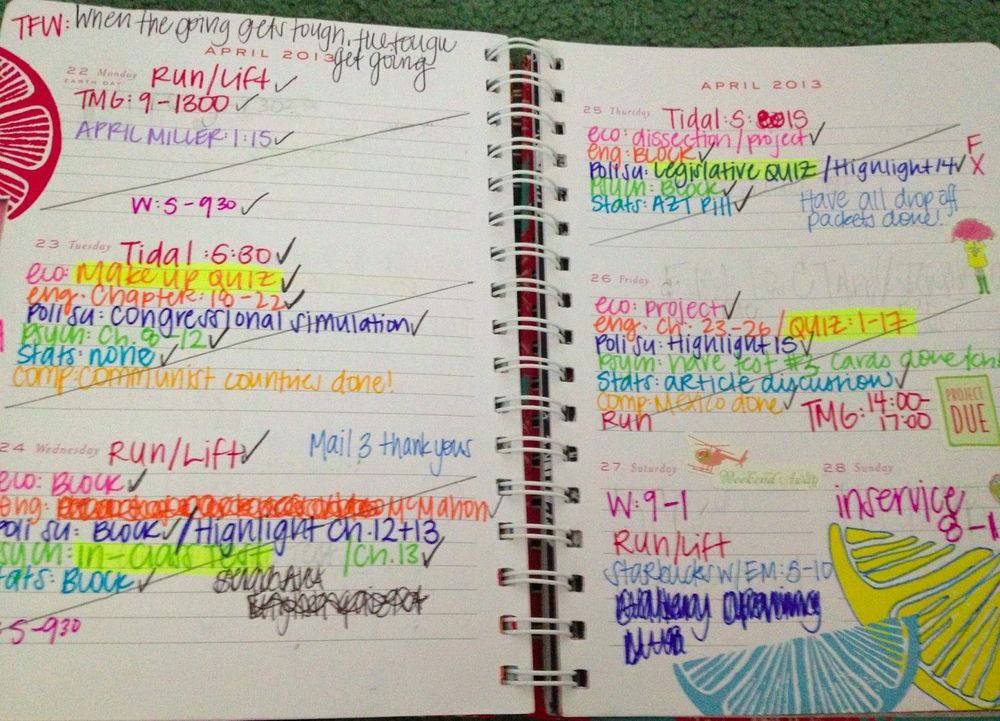 TFW: When the going gets tough, the tough
get going
APRIL 2013
22 Monday Run/Lift ✓
EARTH DAY
TMG: 9-1300 ✓
APRIL MILLER: 1:15 ✓
W: 5-930 ✓
23 Tuesday Tidal: 5:30 ✓
eco: Make up QUIZ ✓
eng: Chapter: 18-22 ✓
Poli Sci: Congressional simulation ✓
Psych: Ch. 8-12 ✓
Stats: none ✓
Comp: Communist countries done!
24 Wednesday Run/Lift ✓ Mail 3 thank yous
eco: BLOCK ✓
eng: McMahon ✓
Poli Sci: BLOCK ✓ / Highlight Ch. 12+13
Psych: in-class Test / Ch. 13 ✓
Stats: BLOCK ✓
: 5-930
APRIL 2013
25 Thursday Tidal: 5: 15
eco: dissection/project ✓
eng: BLOCK ✓
Poli Sci: Legislative QUIZ / Highlight 14 ✓
F
X
Psych: BLOCK ✓
Stats: AZT Pill ✓
Have all drop off
packets done!
26 Friday
eco: project ✓
eng: Ch. 23-26 / QUIZ: 1-17
Poli Sci: Highlight 15 ✓
Psych: have test #3 cards done
Stats: article discussion ✓
Comp: Mexico done ✓
Run TMG: 14:00-
17:00
PROJECT
DUE
27 Saturday
Weekend Away
W: 9-1
Run/Lift
Starbucks W/EM: 5-10
28 Sunday
inservice
8-1